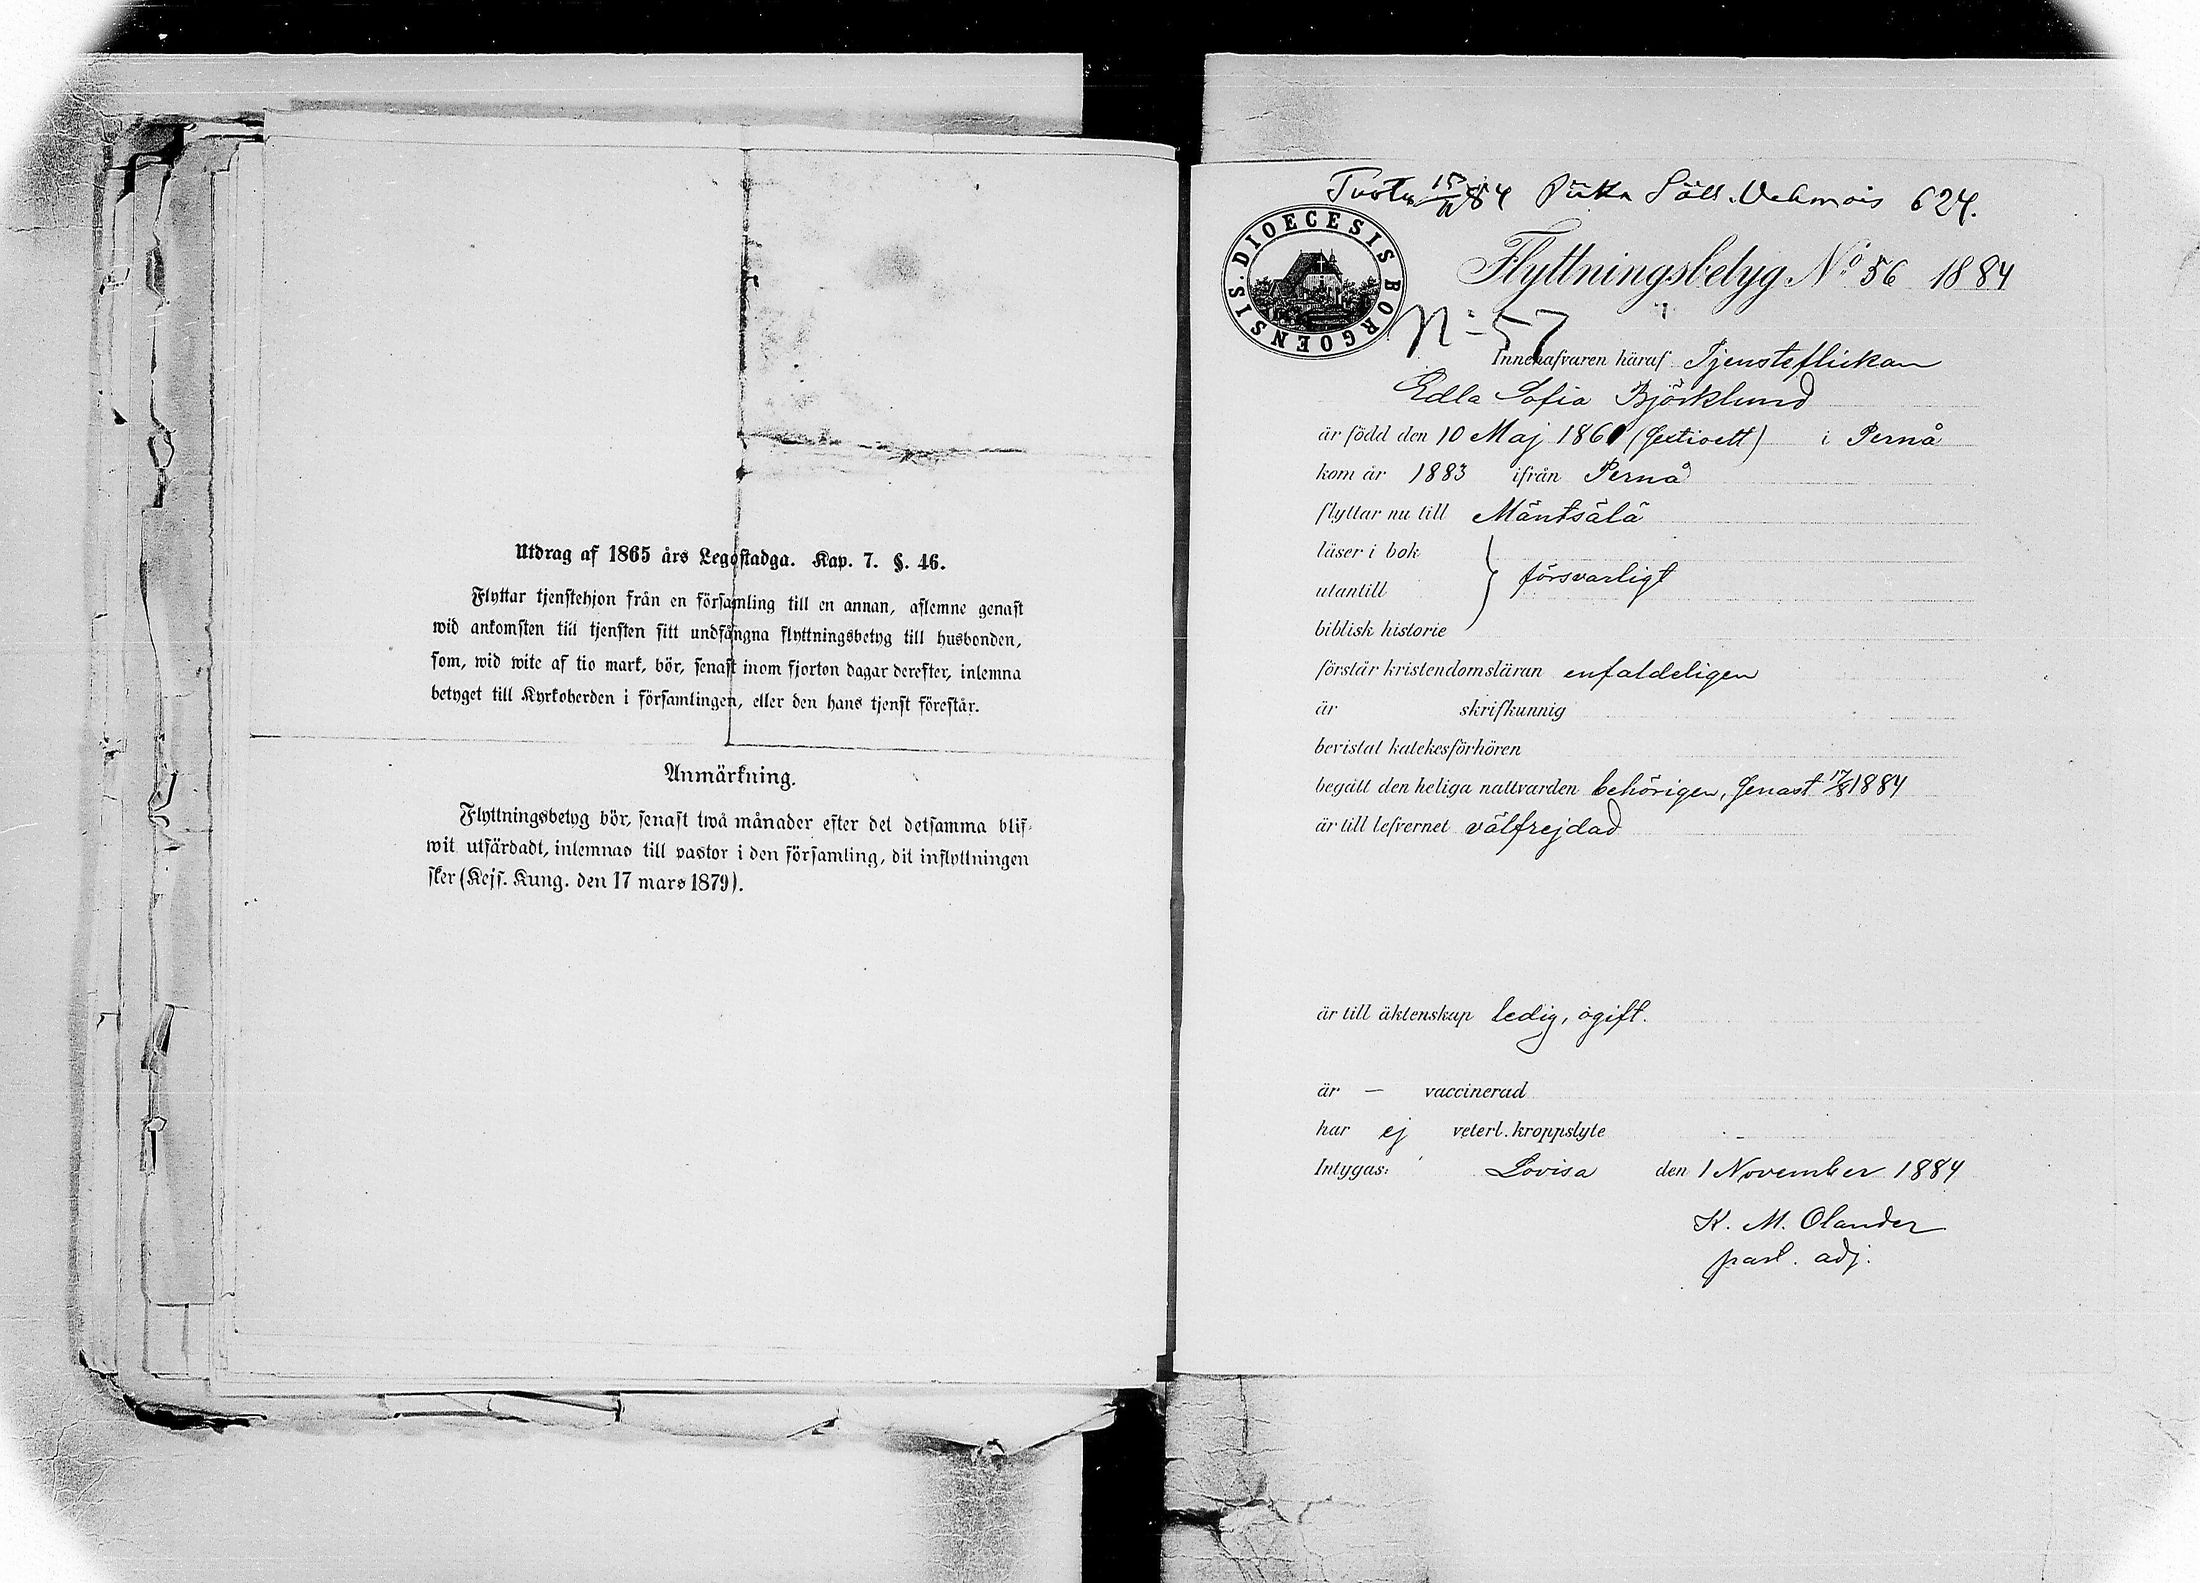 Utdrag af 1865 års Legostadga. Kap. 7. §. 46.
Flyttar tjenstehjon från en församling till en annan, aflemne genast
wid ankomsten till tjensten sitt undfångna flyttningsbetyg till husbonden,
som, wid wite af tio mark, bör, senast inom fjorton dagar derefter, inlemna
betyget till Kyrkoherden i församlingen, eller den hans tjenst förestår.
Anmärkning.
Flyttningsbetyg bör, senast twå månader efter det detsamma blif-
wit utfärdadt, inlemnas till pastor i den församling, dit inflyttningen
sker (Kejs. Kung. den 17 mars 1879).
15/11 84 624.
DIOECESIS BORGOENSIS.
Flyttningsbetyg No 56 1884
N:57
Innehafvaren häraf Tjensteflickan
Edla Sofia Björklund
är född den 10 Maj 1861 (sextioett) i Pernå
kom år 1883 ifrån Pernå
flyttar nu till Mäntsälä
läser i bok
utantill } försvarligt
biblisk historie
förstår kristendomsläran enfaldeligen
är skrifkunnig
bevistat katekesförhören
begått den heliga nattvarden behörigen, senast 17/8 1884
är till lefvernet välfrejdad
är till äktenskap ledig, ogift.
är — vaccinerad
har ej veterl. kroppslyte
Intygas: Lovisa den 1 November 1884
K. M. Olander
past. adj.